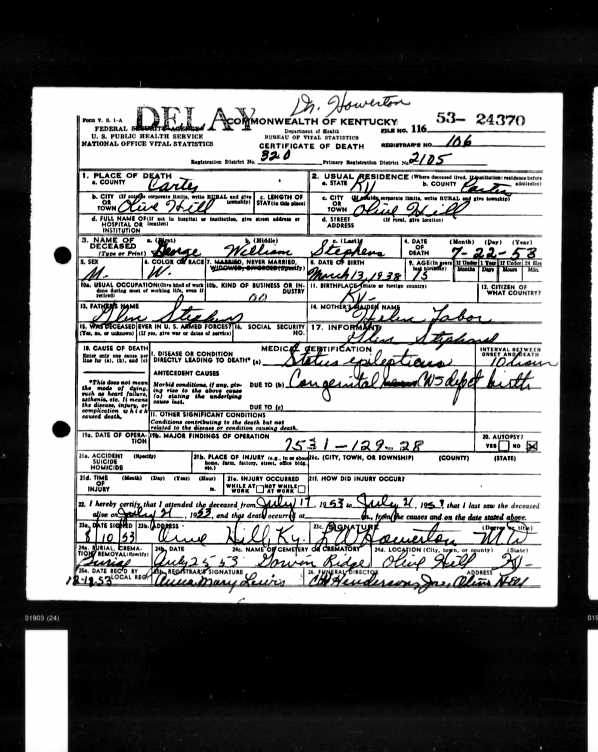 Dr. Howerton
Form V. S. 1-A
DELAY
COMMONWEALTH OF KENTUCKY
53- 24370
FEDERAL SECURITY AGENCY
U. S. PUBLIC HEALTH SERVICE
NATIONAL OFFICE VITAL STATISTICS
Department of Health
BUREAU OF VITAL STATISTICS
CERTIFICATE OF DEATH
FILE NO. 116
REGISTRAR'S NO. 106
Registration District No. 320
Primary Registration District No. 2105
1. PLACE OF DEATH
a. COUNTY Carter
2. USUAL RESIDENCE (Where deceased lived. If institution: residence before admission)
a. STATE KY b. COUNTY Carter
b. CITY (If outside corporate limits, write RURAL and give township) OR TOWN Olive Hill
c. LENGTH OF STAY (in this place)
c. CITY (If outside corporate limits, write RURAL and give township) OR TOWN Olive Hill
d. FULL NAME OF (If not in hospital or institution, give street address or location) HOSPITAL OR INSTITUTION
d. STREET ADDRESS (If rural, give location)
3. NAME OF DECEASED (Type or Print)
a. (First) George
b. (Middle) William
c. (Last) Stephens
4. DATE OF DEATH (Month) (Day) (Year) 7-22-53
5. SEX M.
6. COLOR OR RACE W.
7. MARRIED, NEVER MARRIED, WIDOWED, DIVORCED (Specify)
8. DATE OF BIRTH March 13, 1938
9. AGE (In years last birthday) 15
If Under 1 Year Months Days
If Under 24 Hrs. Hours Min.
10a. USUAL OCCUPATION (Give kind of work done during most of working life, even if retired)
10b. KIND OF BUSINESS OR INDUSTRY
11. BIRTHPLACE (State or foreign country) Ky-
12. CITIZEN OF WHAT COUNTRY?
13. FATHER'S NAME Glen Stephens
14. MOTHER'S MAIDEN NAME Helen Tabor
15. WAS DECEASED EVER IN U. S. ARMED FORCES? (Yes, no, or unknown) (If yes, give war or dates of service)
16. SOCIAL SECURITY NO.
17. INFORMANT Glen Stephens
18. CAUSE OF DEATH
Enter only one cause per line for (a), (b), and (c)
MEDICAL CERTIFICATION
INTERVAL BETWEEN ONSET AND DEATH
I. DISEASE OR CONDITION DIRECTLY LEADING TO DEATH* (a) Status epilepticus 10 hours
*This does not mean the mode of dying, such as heart failure, asthenia, etc. It means the disease, injury, or complication which caused death.
ANTECEDENT CAUSES
Morbid conditions, if any, giving rise to the above cause (a) stating the underlying cause last.
DUE TO (b) Congenital birth
DUE TO (c)
II. OTHER SIGNIFICANT CONDITIONS
Conditions contributing to the death but not related to the disease or condition causing death.
19a. DATE OF OPERATION
19b. MAJOR FINDINGS OF OPERATION
7531-129-28
20. AUTOPSY? YES NO
21a. ACCIDENT SUICIDE HOMICIDE (Specify)
21b. PLACE OF INJURY (e.g., in or about home, farm, factory, street, office bldg., etc.)
21c. (CITY, TOWN, OR TOWNSHIP) (COUNTY) (STATE)
21d. TIME OF INJURY (Month) (Day) (Year) (Hour) m.
21e. INJURY OCCURRED WHILE AT WORK NOT WHILE AT WORK
21f. HOW DID INJURY OCCUR?
22. I hereby certify that I attended the deceased from July 17, 1953 to July 21, 1953, that I last saw the deceased
alive on July 21, 1953, and that death occurred at m., from the causes and on the date stated above.
23a. DATE SIGNED 8 10 53
23b. ADDRESS Olive Hill, Ky.
23c. SIGNATURE Howerton (Degree or title) MD
24a. BURIAL, CREMATION, REMOVAL (Specify) Burial
24b. DATE July 25 53
24c. NAME OF CEMETERY OR CREMATORY Ridge
24d. LOCATION (City, town, or county) (State) Olive Hill Ky-
25a. DATE REC'D BY LOCAL REG. 12-18-53
25b. REGISTRAR'S SIGNATURE Anna Mary Lewis
26. FUNERAL DIRECTOR ADDRESS Henderson Olive Hill
01903 (24)